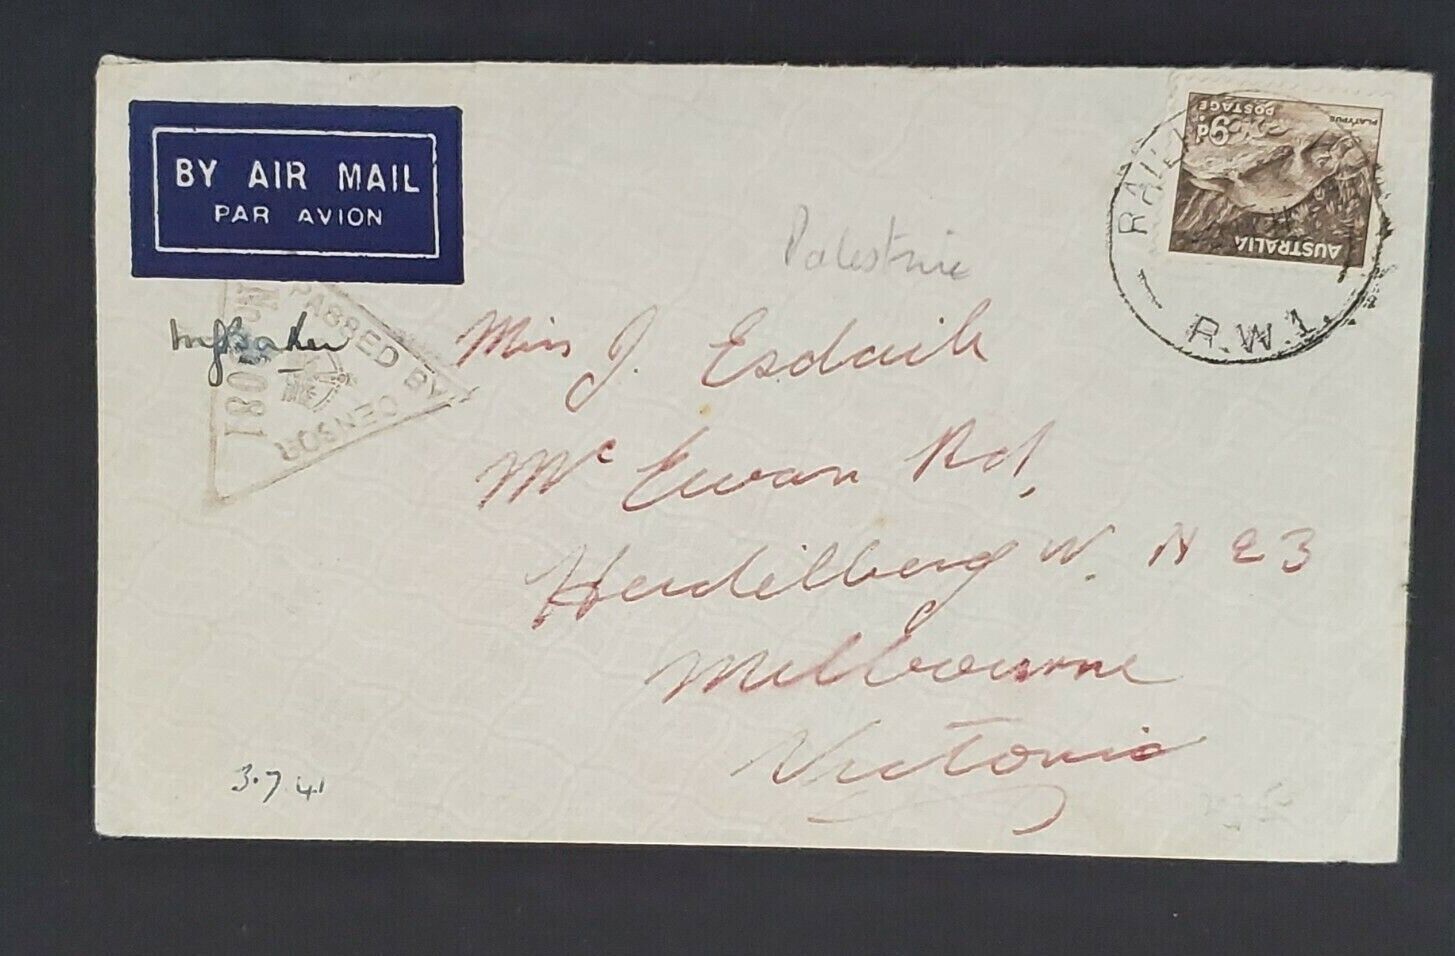 BY AIR MAIL
PAR AVION
POSTAGE
9d.
PLATYPUS
AUSTRALIA
R.W.1.
Palestine
PASSED BY
CENSOR
180
Miss J. Esdaile
Mc Ewan Rd,
Heidelberg W. N E 3
Melbourne
Victoria
3.7.41